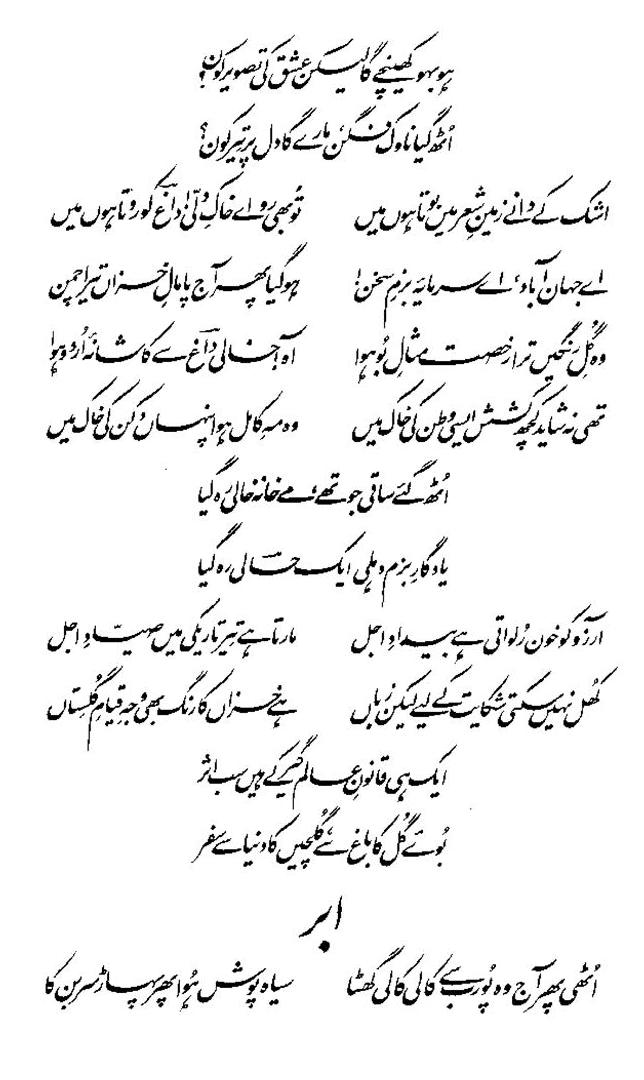 ہو بہو کھینچے گا لیکن عشق کی تصویر کون؟
اُٹھ گیا ناوک فگن، مارے گا دل پر تیر کون؟
اشک کے دانے زمینِ شعر میں بوتا ہوں میں تُو بھی رو اے خاکِ دلّی! داغؔ کو روتا ہوں میں
اے جہان آباد، اے سرمایۂ بزمِ سخن! ہو گیا پھر آج پامالِ خزاں تیرا چمن
وہ گُلِ رنگیں ترا رخصت مثالِ بُو ہوا آہ! خالی داغؔ سے کاشانۂ اُردو ہوا
تھی نہ شاید کچھ کشش ایسی وطن کی خاک میں وہ مہِ کامل ہوا پنہاں دکن کی خاک میں
اُٹھ گئے ساقی جو تھے، مے خانہ خالی رہ گیا
یادگارِ بزمِ دہلی ایک حالیؔ رہ گیا
آرزو کو خون رُلواتی ہے بیدادِ اجل مارتا ہے تیر تاریکی میں صیّادِ اجل
کھُل نہیں سکتی شکایت کے لیے لیکن زباں ہے خزاں کا رنگ بھی وجہِ قیامِ گلستاں
ایک ہی قانونِ عالم گیر کے ہیں سب اثر
بُوئے گُل کا باغ سے، گُلچیں کا دنیا سے سفر
ابر
اُٹھی پھر آج وہ پُورب سے کالی کالی گھٹا سیاہ پوش ہُوا پھر پہاڑ سربن کا